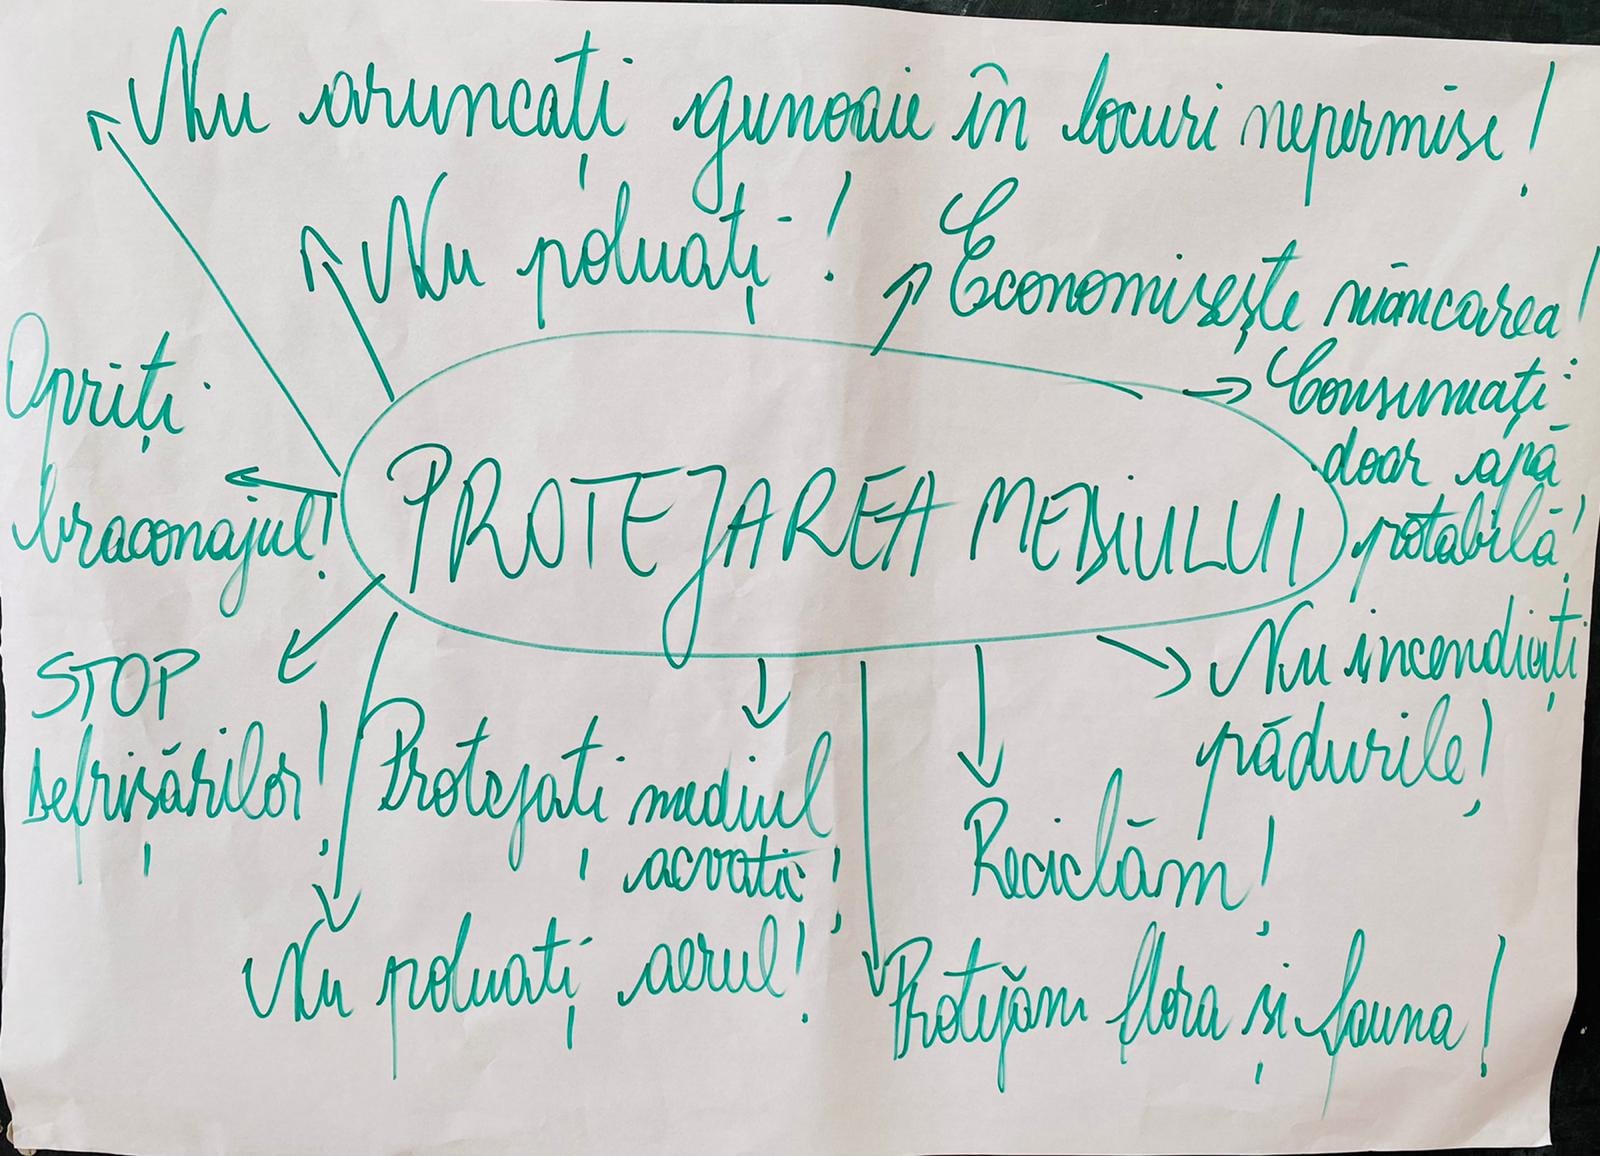 Nu aruncați gunoaie în locuri nepermise!
Nu poluați!
Economisește mâncarea!
Consumați
doar apă
potabilă!
Opriți
braconajul!
PROTEJAREA MEDIULUI
STOP
defrișărilor!
Nu incendiați
pădurile!
Protejați mediul
acvatic!
Reciclăm!
Nu poluați aerul!
Protejăm flora și fauna!